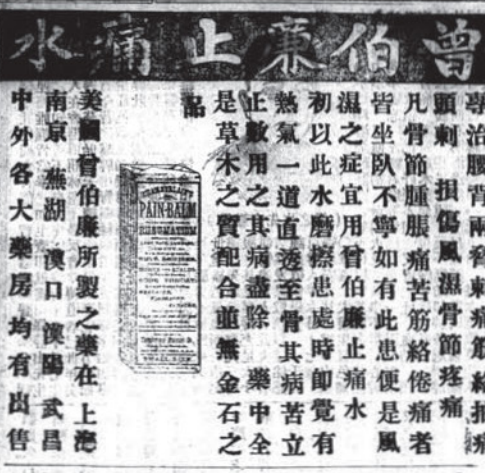 曾伯廉止痛水
專治腰背兩脅刺痛筋絡扭痛
頭刺 損傷風濕骨節疼痛
凡骨節腫脹痛苦筋絡倦痛者
皆坐臥不寧如有此患便是風
濕之症宜用曾伯廉止痛水
初以此水磨擦患處時即覺有
熱氣一道直透至骨其病苦立
止數用之其病盡除 藥中全
是草木之質配合並無金石之
品
CHAMBERLAIN'S
PAIN-BALM
RHEUMATISM
美國曾伯廉所製之藥在 上海
南京 蕪湖 漢口 漢陽 武昌
中外各大藥房 均有出售